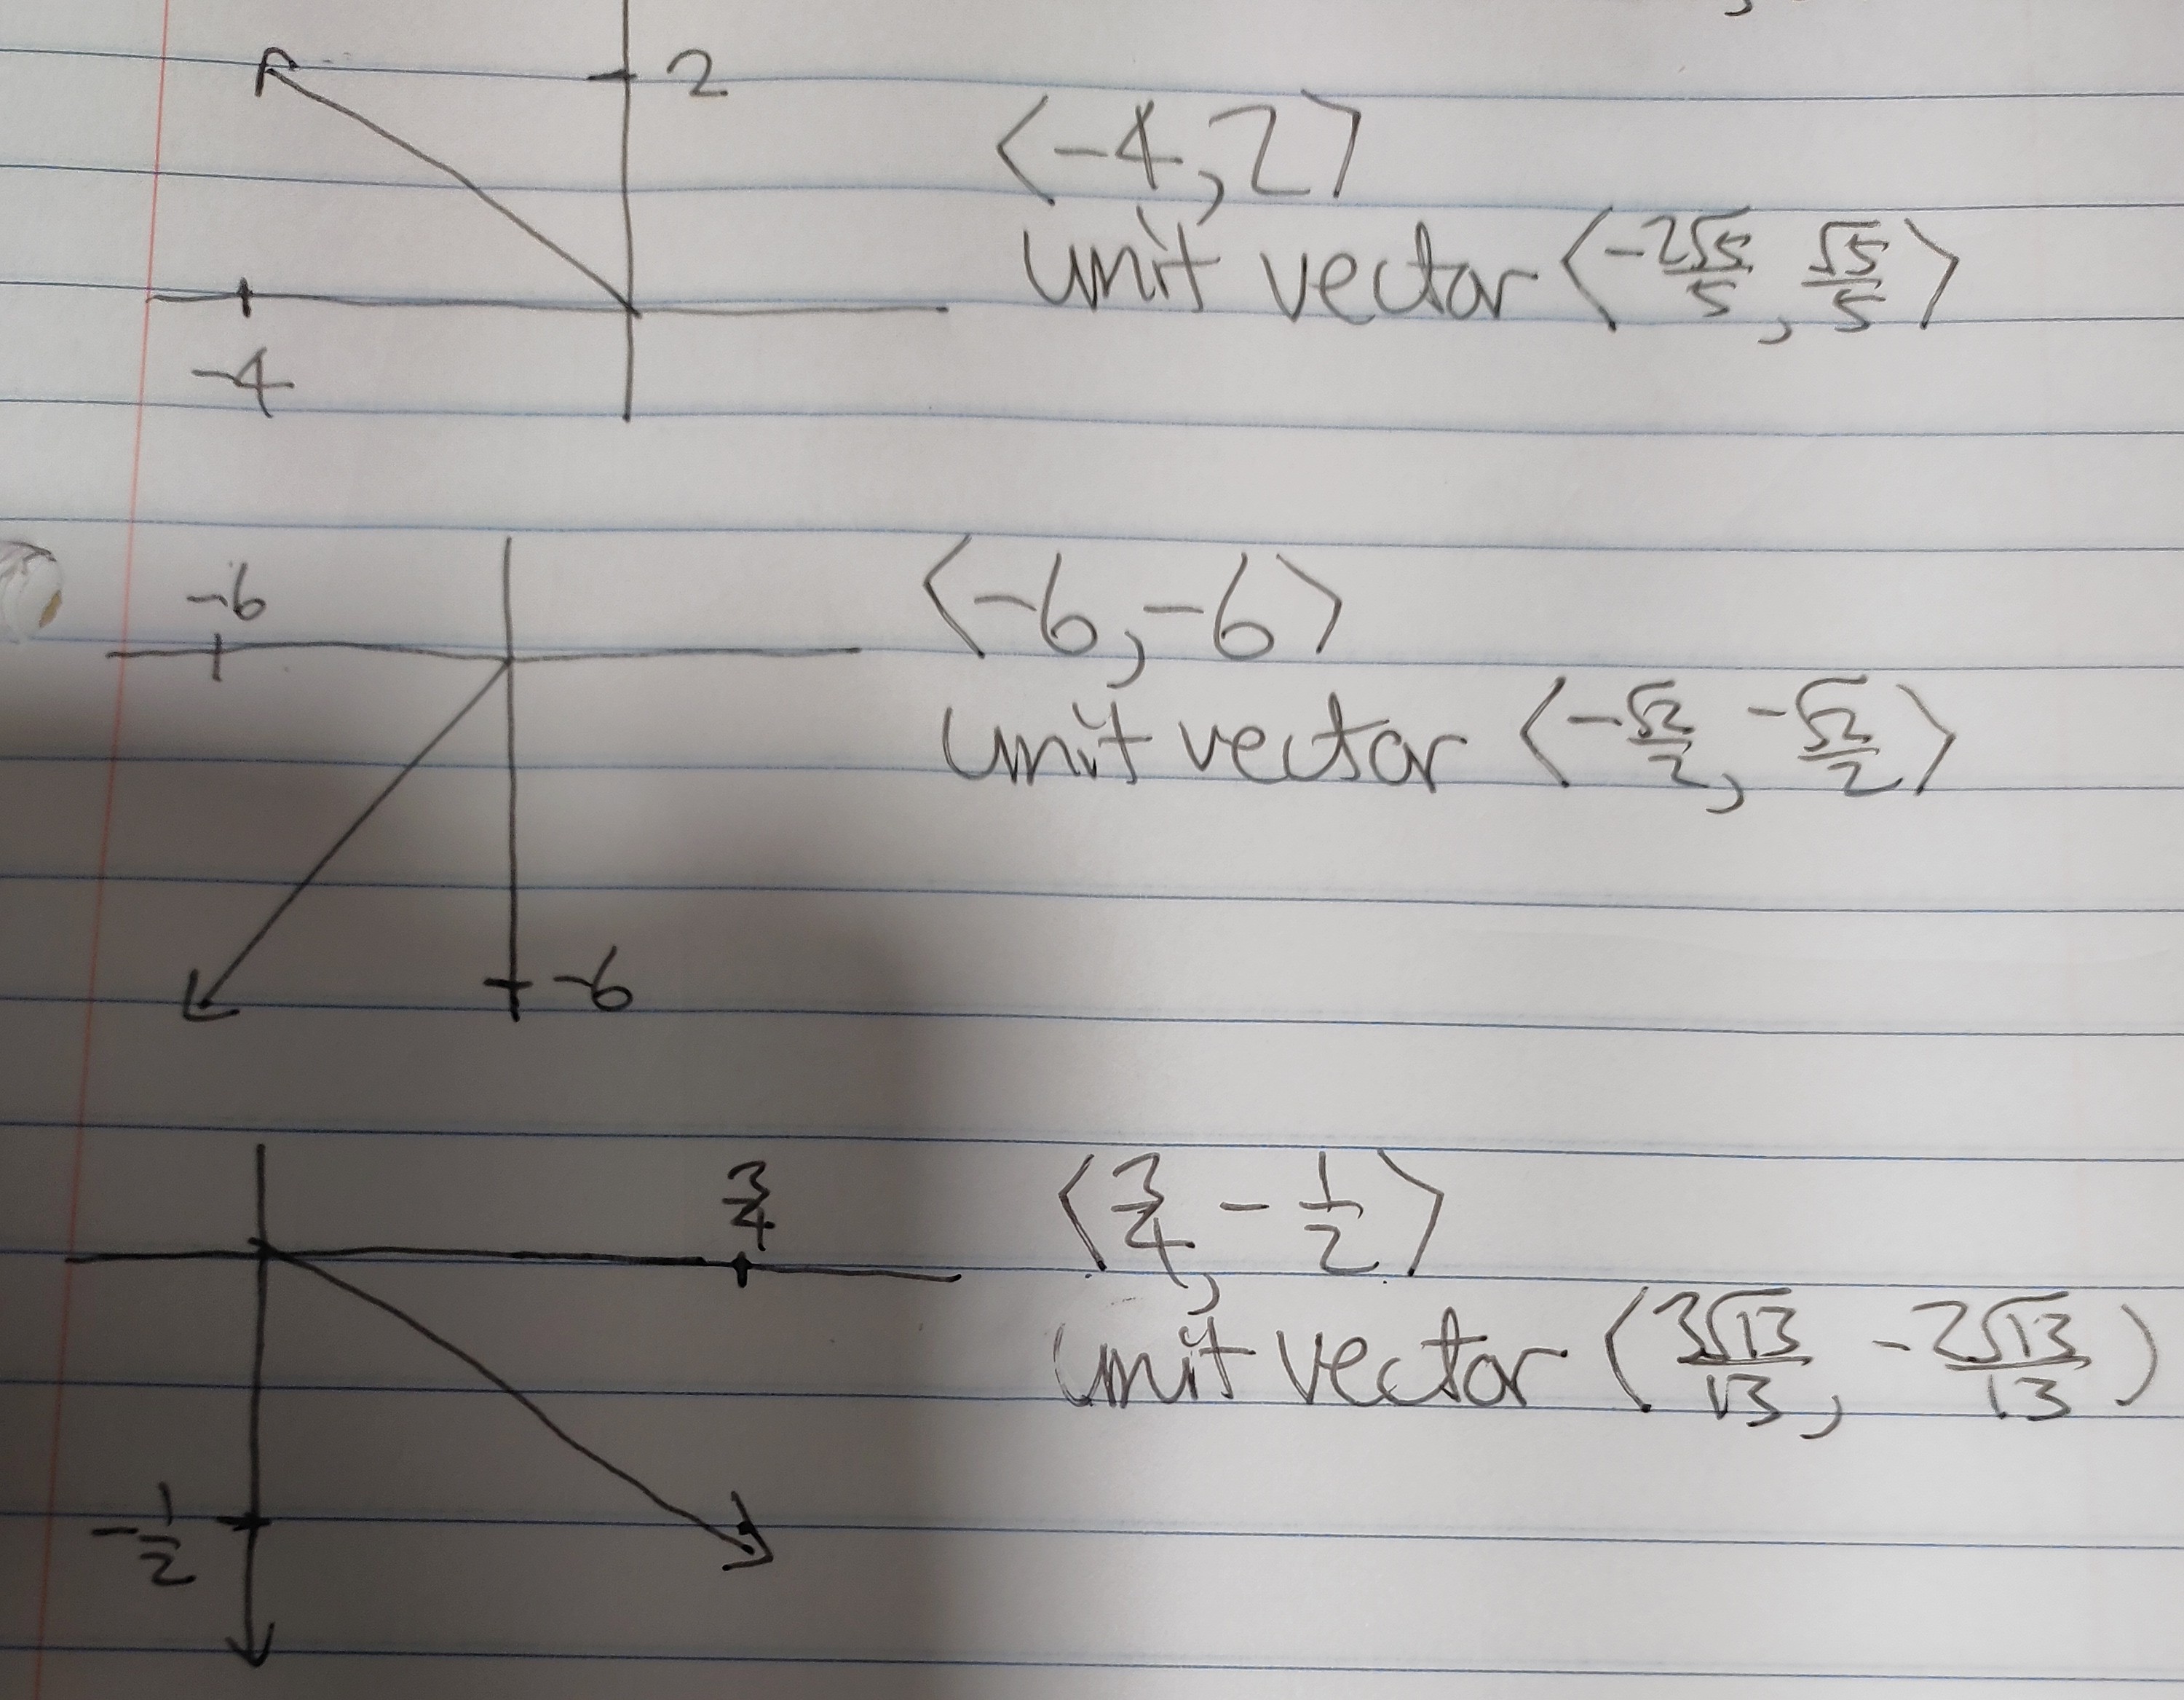 2
⟨-4, 2⟩
unit vector ⟨-2√5/5, √5/5⟩
-4
-6
⟨-6, -6⟩
unit vector ⟨-√2/2, -√2/2⟩
-6
3/4
⟨3/4, -1/2⟩
unit vector (3√13/13, -2√13/13)
-1/2